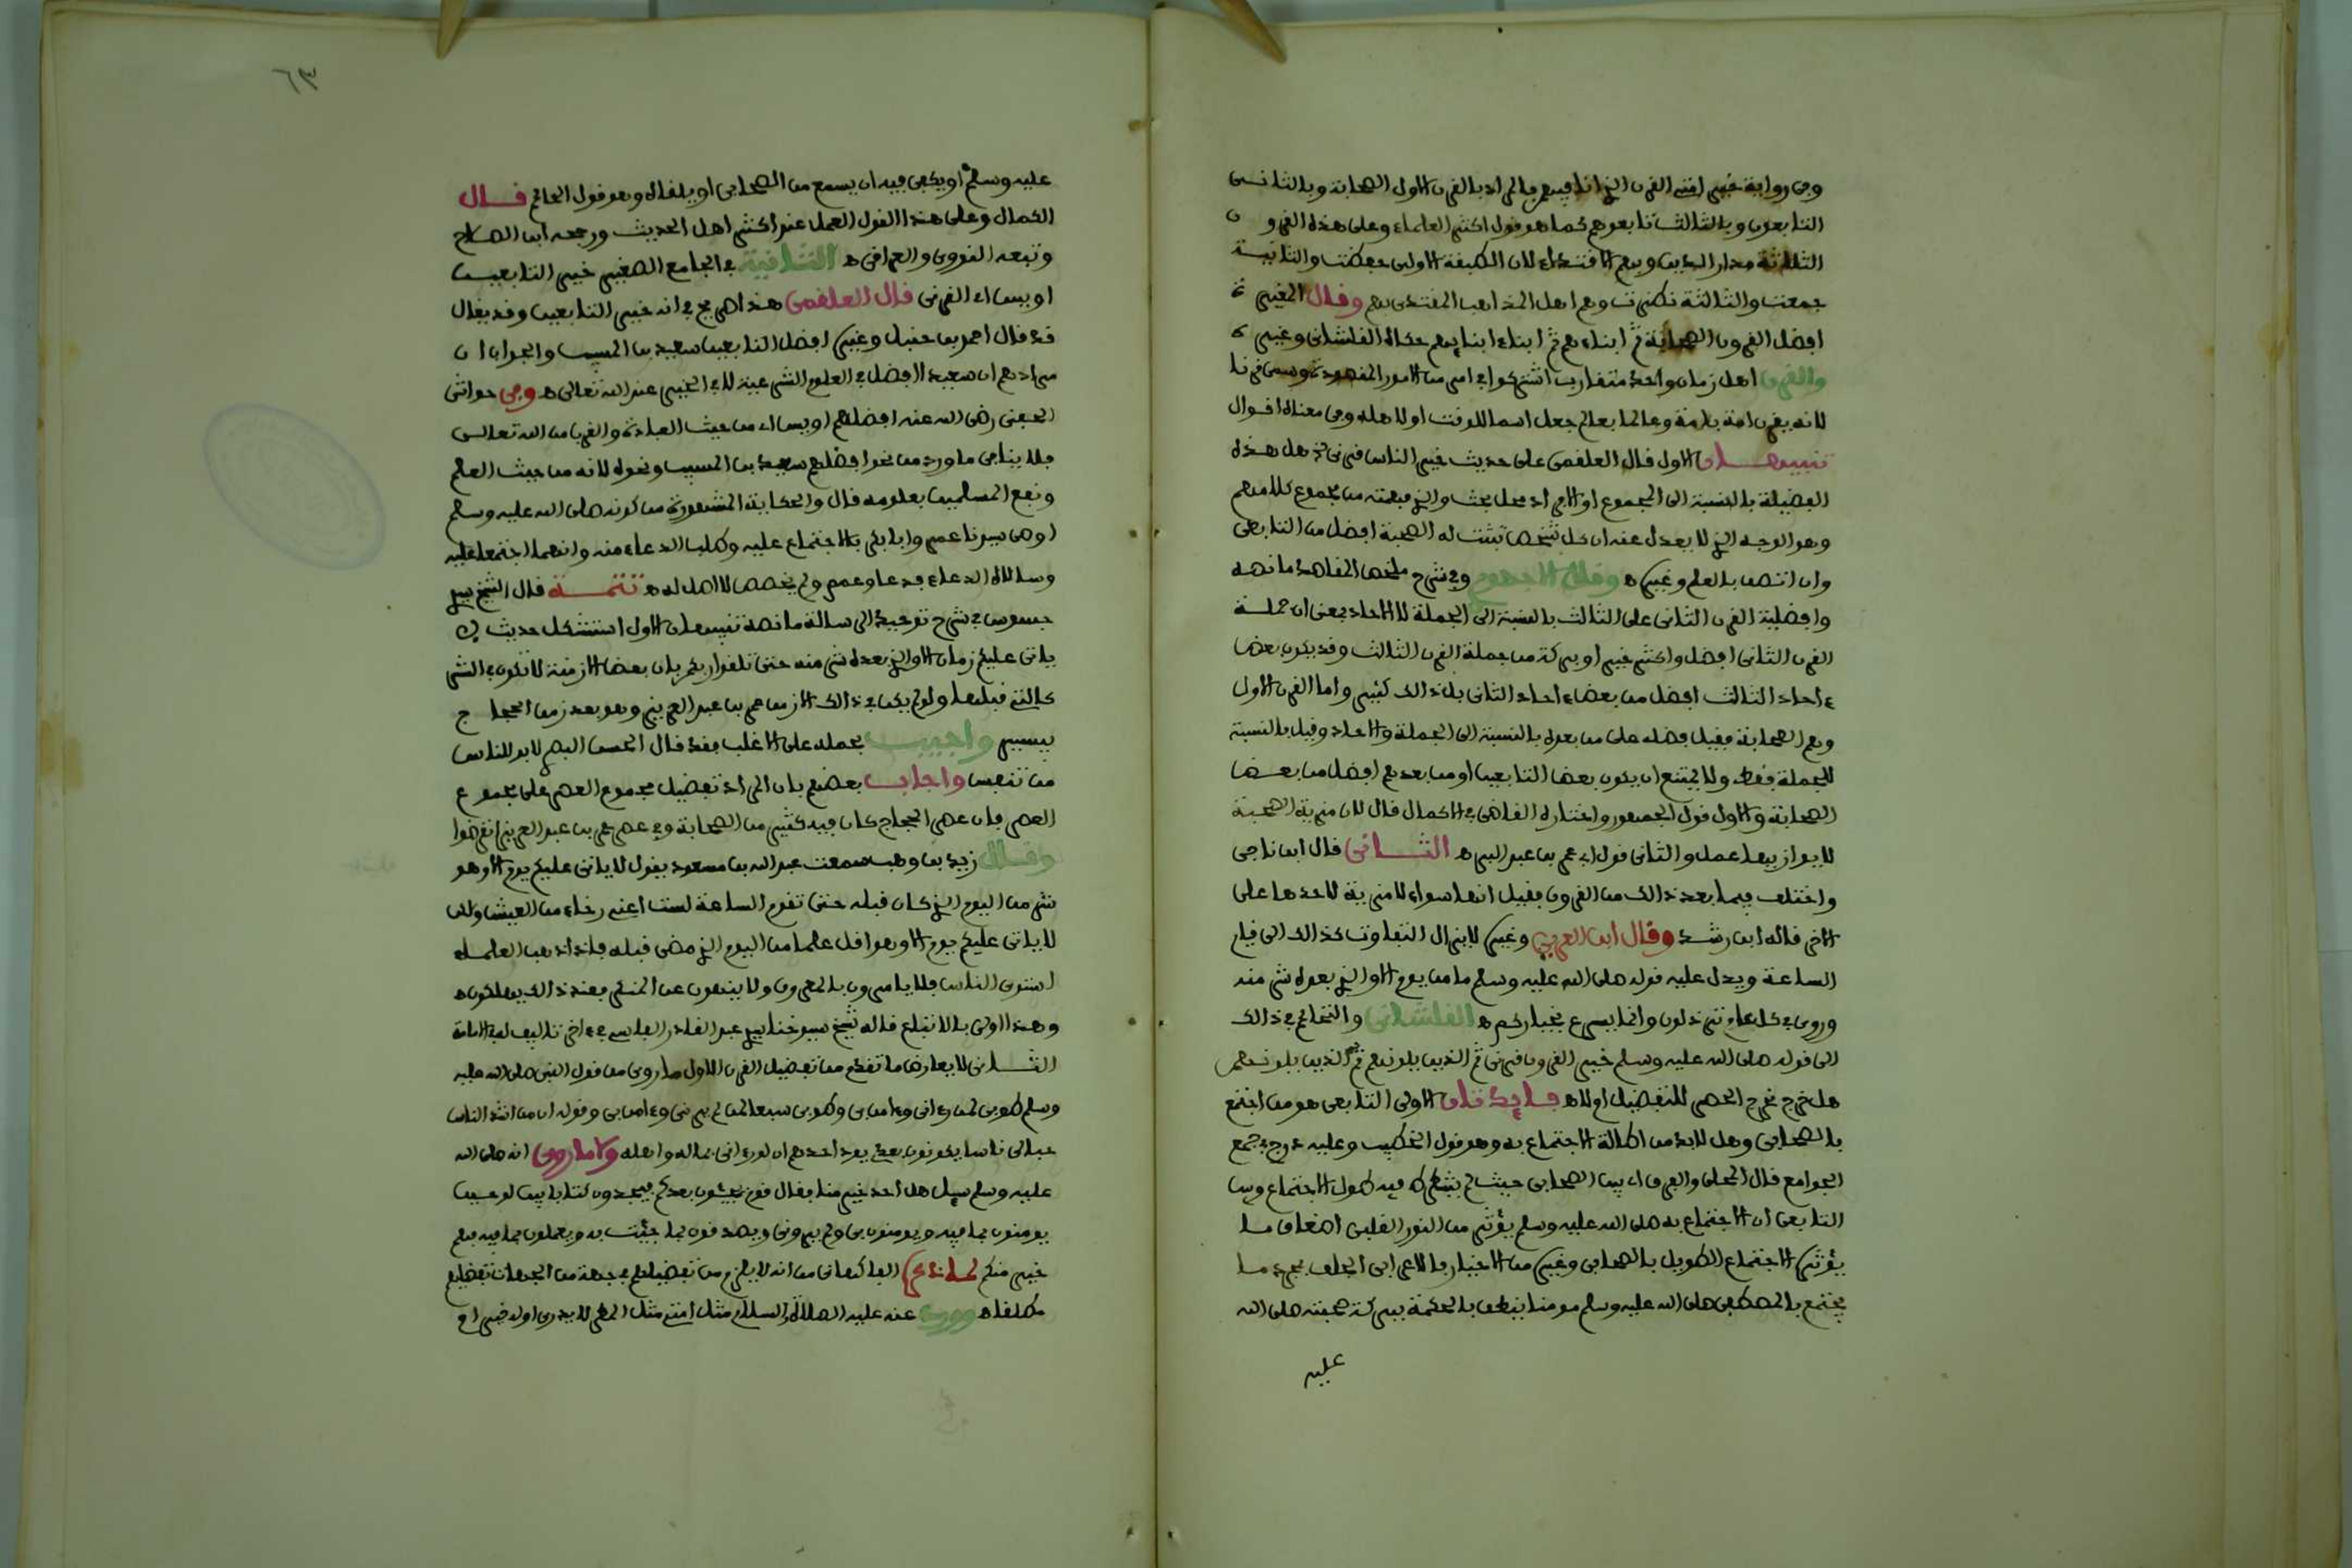 وفي رواية خير امتي القرن الذي انا فيهم فالمراد بالقرن الاول الصحابة وبالثاني
التابعون وبالثالث تابعوهم كما هو قول اكثر العلماء وعلى هذه القرو ن
الثلاثة مدار الدين وبهم الاقتداء لان الطبقة الاولى حفظت والثانية
جمعت والثالثة نظرت وهم اهل المذاهب المقتدى بهم وقال المغيرة
افضل القرون الصحابة ثم ابناءهم ثم ابناء ابنايهم حكاه القلشاني وغيره
والقرن اهل زمان واحد متقارب اشتركوا في امر من الامور المقصودة وسمى قرنا
لانه يقرن امة بامة وعالما بعالم جعل اسما للوقت او لاهله وفي معناه اقوال
تنبيهان الاول قال العلقمي على حديث خير الناس قرني الخ هل هذه
الفضيلة بالنسبة الى المجموع او الافراد محل بحث والذي فهمته من مجموع كلامهم
وهو الوجه الذي لا يعدل عنه ان كل شخص ثبتت له الصحبة افضل من التابعي
وان اتصف بالعلم وغيره ه وقال الاجهوري وفي شرح ملخص المقاصد ما نصه
وافضلية القرن الثاني على الثالث بالنسبة الى الجملة لا الاحاد بمعنى ان جملة
القرن الثاني افضل واكثر خيرا وبركة من جملة القرن الثالث وقد يكون بعض
ءاحاد الثالث افضل من بعض ءاحاد الثاني بل ذلك كثير واما القرن الاول
وهم الصحابة فقيل فضله على من بعده بالنسبة الى الجملة والاحاد وقيل بالنسبة
للجملة فقط ولا يمتنع ان يكون بعض التابعين او من بعدهم افضل من بعض
الصحابة والاول قول الجمهور واختاره القاضي في الاكمال قال لان مزية الصحبة
لا يوازيها عمل والثاني قول ابي عمر بن عبد البر ه الثاني قال ابن ناجي
واختلف فيما بعد ذلك من القرون فقيل انها سواء لا مزية لاحدها على
الاخر قاله ابن رشد وقال ابن العربي وغيره لا يزال التفاوت كذلك الى قيام
الساعة ويدل عليه قوله صلى الله عليه وسلم ما من يوم الا والذي بعده شر منه
وروي في كل عام ترذلون وانما يسرع بخياركم ه القلشاني والتتائي في ذلك
الى قوله صلى الله عليه وسلم خير القرون قرني ثم الذين يلونهم ثم الذين يلونهم
هل خرج مخرج الحصر للتفضيل اولا ه فايدتان الاولى التابعي هو من اجتمع
بالصحابي وهل لا بد من اطالة الاجتماع به وهو قول الخطيب وعليه درج في جمع
الجوامع قال المحلى والفرق ان بين الصحابي حيث لم يشترط فيه طول الاجتماع وبين
التابعي ان الاجتماع به صلى الله عليه وسلم يؤثر من النور القلبي اضعاف ما
يؤثره الاجتماع الطويل بالصحابي وغيره من الاخيار فالاعرابي الجلف بمجرد ما
يجتمع بالمصطفى صلى الله عليه وسلم مومنا ينطق بالحكمة ببركة صحبته صلى الله
عليه
٦٣
عليه وسلم او يكفي فيه ان يسمع من الصحابي او يلقاه وهو قول الحاكم قال
الكمال وعلى هذا القول العمل عند اكثر اهل الحديث ورجحه ابن الصلاح
وتبعه النووي والعراقي ه الثانية في الجامع الصغير خير التابعين
اويس القرني قال العلقمي هذا صريح في انه خير التابعين وقد يقال
قد قال احمد بن حنبل وغيره افضل التابعين سعيد بن المسيب والجواب ان
مرادهم ان سعيد افضل في العلوم الشرعية لا في الخير عند الله تعالى ه وفي حواشي
الحفني رضي الله عنه افضلهم اويس اي من حيث العبادة والقرب من الله تعالى
فلا ينافي ما ورد من نحو افضلهم سعيد بن المسيب ونحوه لانه من حيث العلم
ونفع المسلمين بعلومه قال والحكاية المشهورة من كونه صلى الله عليه وسلم
اوصى سيدنا عمر وابا بكر بالاجتماع عليه وطلب الدعاء منه وانهما اجتمعا عليه
وسالاه الدعاء فدعا وعمم ولم يخصص لا اصل له ه تتمة قال الشيخ سيدي
جسوس في شرح توحيد الرسالة ما نصه تنبيهان الاول استشكل حديث لا
ياتي عليكم زمان الا والذي بعده شر منه حتى تلقوا ربكم بان بعض الازمنة لا تكون في الشر
كالتي قبلها ولو لم يكن في ذلك الا زمن عمر بن عبد العزيز وهو بعد زمن الحجا ج
بيسير واجيب بحمله على الاغلب فقد قال الحسن البصري لا بد للناس
من تنفس واجاب بعضهم بان المراد تفضيل مجموع العصر على مجموع
العصر فان عصر الحجاج كان فيه كثير من الصحابة وفي عصر عمر بن عبد العزيز انقرضوا
وقال زيد بن وهب سمعت عبد الله بن مسعود يقول لا ياتي عليكم يوم الا وهو
شر من اليوم الذي كان قبله حتى تقوم الساعة لست اعني رخاء من العيش ولكن
لا ياتي عليكم يوم الا وهو اقل علما من اليوم الذي مضى قبله فاذا ذهب العلماء
استوى الناس فلا يامرون بالمعروف ولا ينهون عن المنكر فعند ذلك يهلكون ه
وهذا اولى بالاتباع قاله شيخ شيوخنا سيدي عبد القادر الفاسي في ءاخر تاليف له في الامامة
الثاني لا يعارض ما تقدم من تفضيل القرن الاول ما روي من قول النبي صلى الله عليه
وسلم طوبى لمن رءاني وءامن بي وطوبى سبعا لمن لم يرني وءامن بي وقوله ان من اشد الناس
حبا لي ناسا يكونون بعدي يود احدهم ان لو رءاني بماله واهله ولا ما روي انه صلى الله
عليه وسلم سيل هل احد خير منا فقال قوم يجيئون بعدكم فيجدون كتابا بين لوحين
يومنون بما فيه ويومنون بي ولم يروني ويصدقون بما جئت به ويعملون بما فيه فهم
خير منكم لما ذكره الفاكهاني من انه لا يلزم من تفضيلهم في جهة من الجهات تفضيلهم
مطلقا ه وورد عنه عليه الصلاة والسلام مثل امتي مثل المطر لا يدرى اوله خير ام